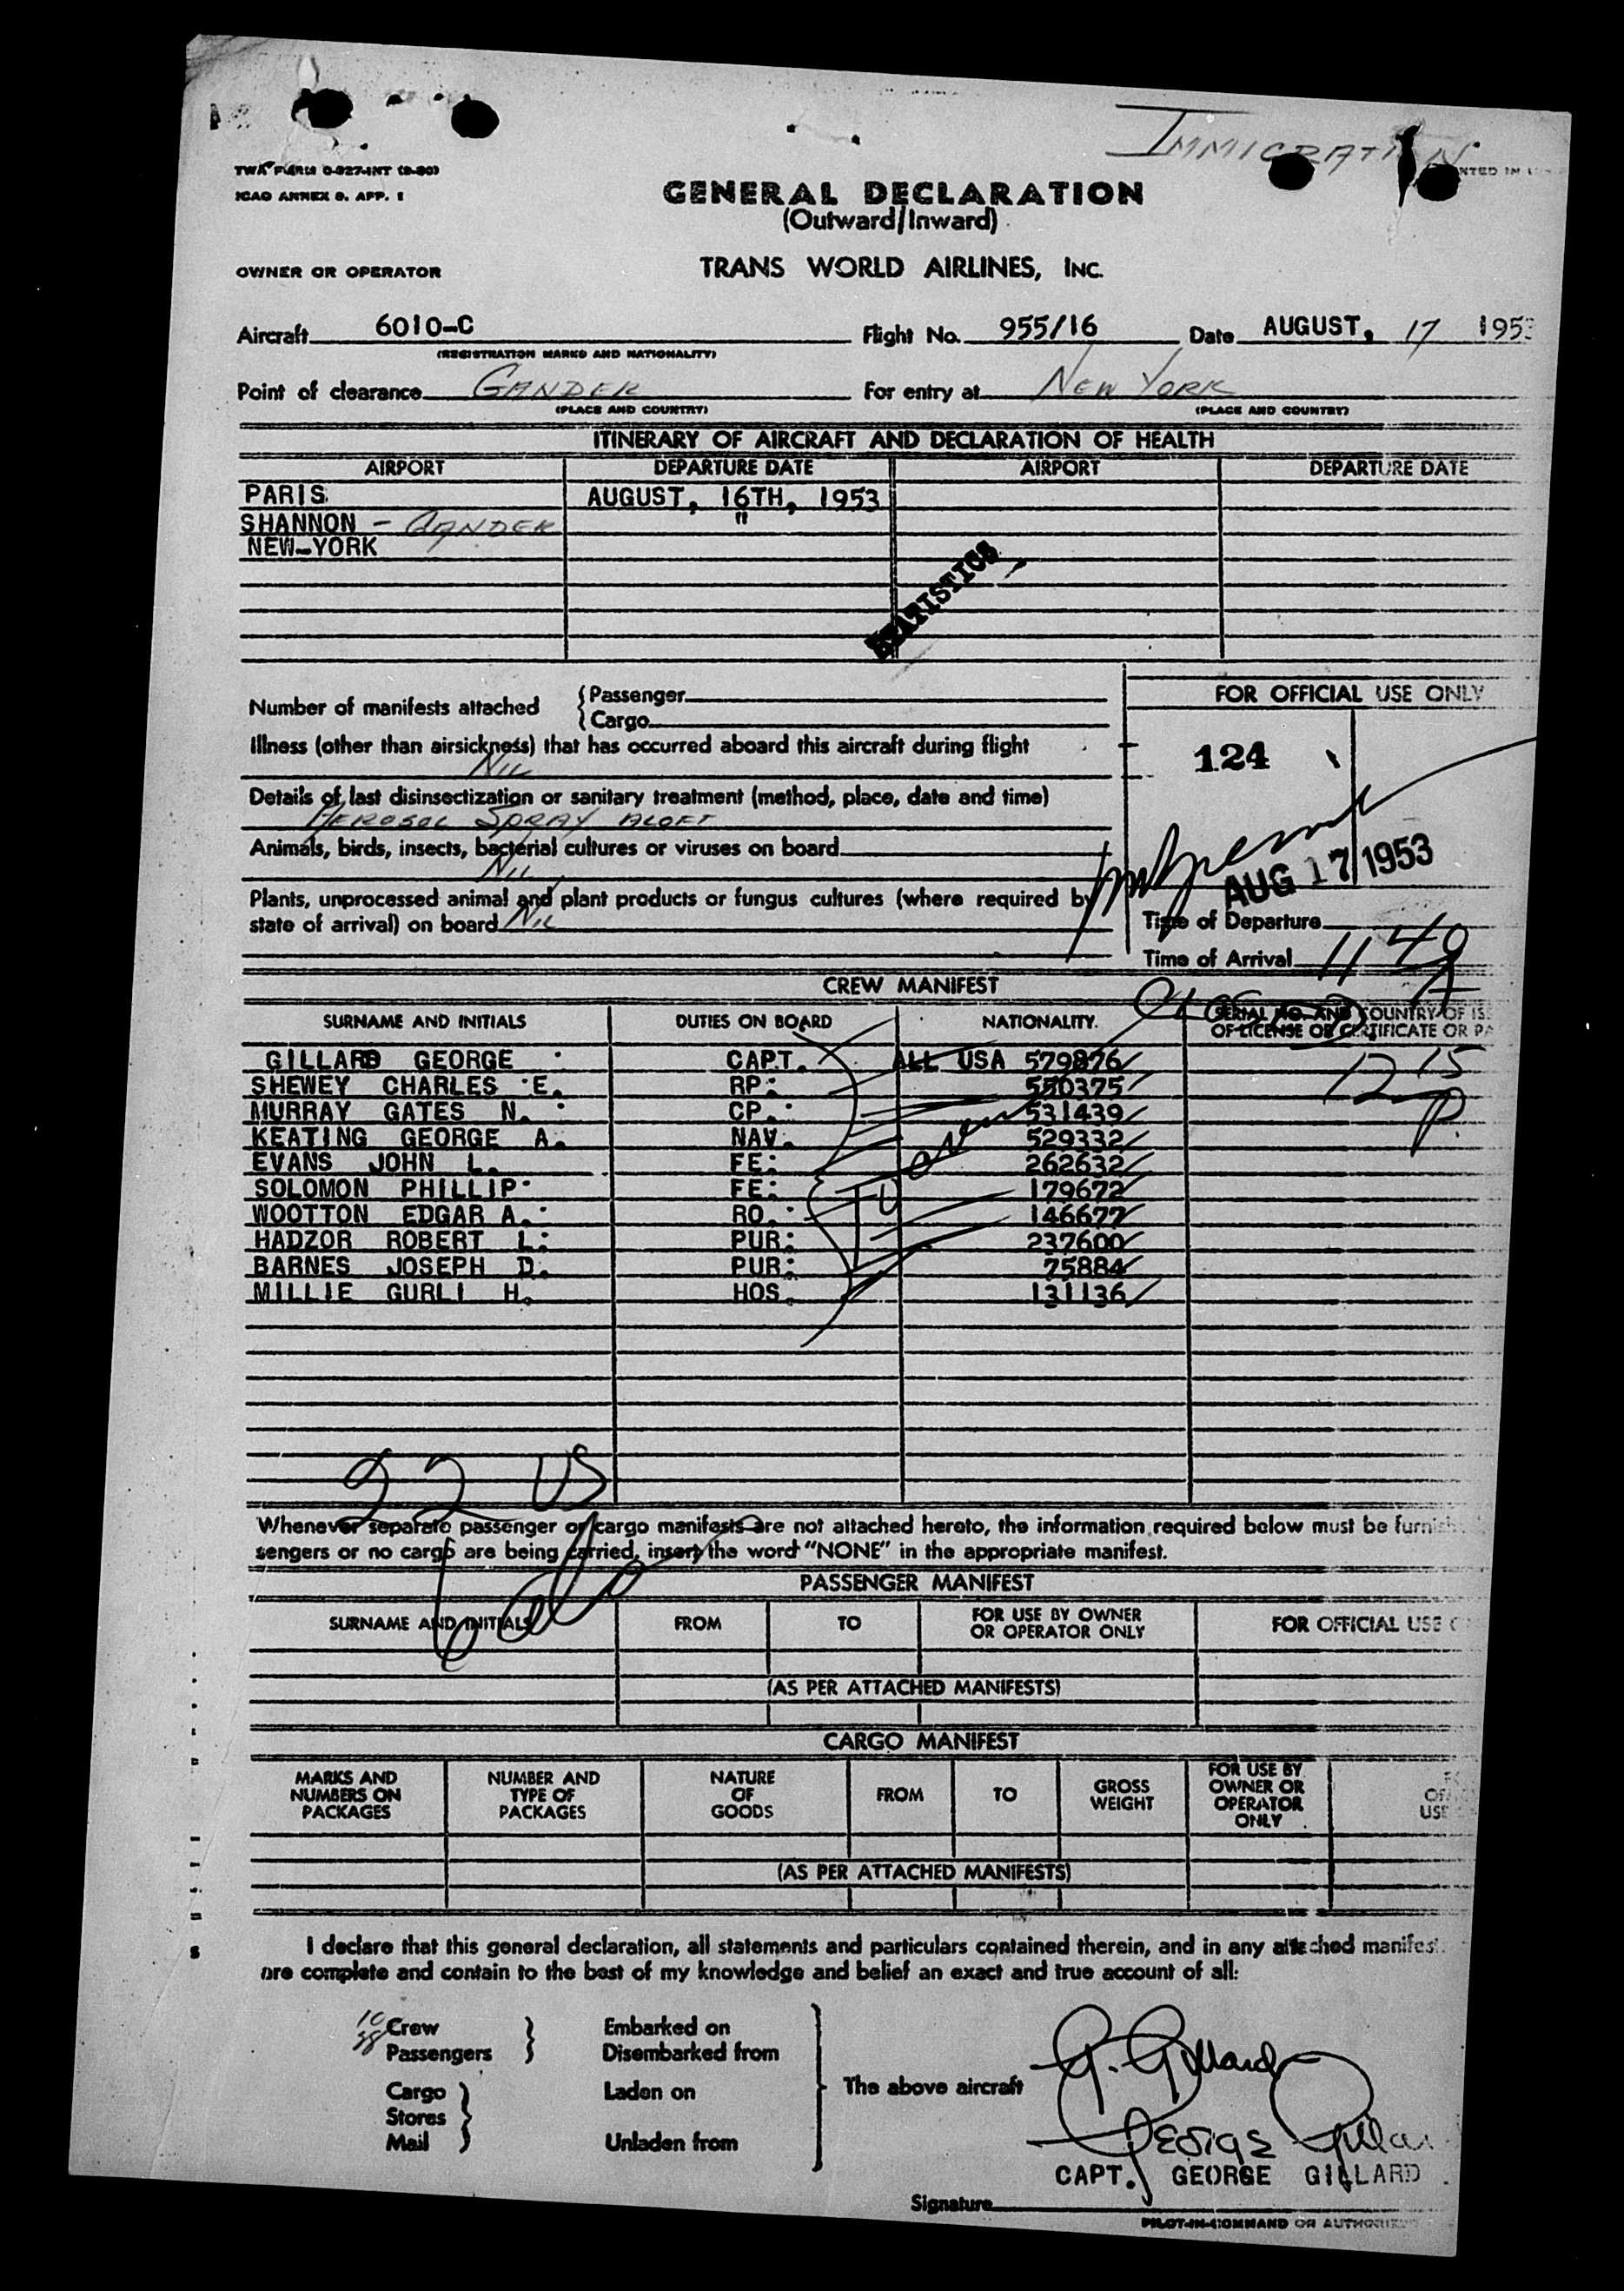 IMMIGRATION
TWA FORM O-827-INT (9-50)
ICAO ANNEX 9. APP. 1
GENERAL DECLARATION
(Outward/Inward)
OWNER OR OPERATOR TRANS WORLD AIRLINES, INC.
Aircraft 6010-C Flight No. 955/16 Date AUGUST, 17 1953
(REGISTRATION MARKS AND NATIONALITY)
Point of clearance GANDER For entry at NEW YORK
(PLACE AND COUNTRY) (PLACE AND COUNTRY)
ITINERARY OF AIRCRAFT AND DECLARATION OF HEALTH
AIRPORT DEPARTURE DATE AIRPORT DEPARTURE DATE
PARIS AUGUST, 16TH, 1953
SHANNON - GANDER "
NEW-YORK
STATISTICS
Number of manifests attached {Passenger
{Cargo
FOR OFFICIAL USE ONLY
Illness (other than airsickness) that has occurred aboard this aircraft during flight
NIL
124
Details of last disinsectization or sanitary treatment (method, place, date and time)
AEROSOL SPRAY ALOFT
Animals, birds, insects, bacterial cultures or viruses on board
NIL
AUG 17 1953
Plants, unprocessed animal and plant products or fungus cultures (where required by
state of arrival) on board NIL
Time of Departure
Time of Arrival 11 49 A
CREW MANIFEST
SURNAME AND INITIALS DUTIES ON BOARD NATIONALITY. SERIAL NO. AND COUNTRY OF IS
OF LICENSE OR CERTIFICATE OR PA
GILLARD GEORGE CAPT. ALL USA 579876
SHEWEY CHARLES E. RP. 550375
MURRAY GATES N. CP. 531439
KEATING GEORGE A. NAV. 529332
EVANS JOHN L. FE. 262632
SOLOMON PHILLIP FE. 179672
WOOTTON EDGAR A. RO. 146677
HADZOR ROBERT L. PUR. 237600
BARNES JOSEPH D. PUR. 75884
MILLIE GURLI H. HOS. 131136
12 15 P.
22 US
Whenever separate passenger or cargo manifests are not attached hereto, the information required below must be furnish
sengers or no cargo are being carried, insert the word "NONE" in the appropriate manifest.
PASSENGER MANIFEST
SURNAME AND INITIALS FROM TO FOR USE BY OWNER OR OPERATOR ONLY FOR OFFICIAL USE O
(AS PER ATTACHED MANIFESTS)
CARGO MANIFEST
MARKS AND NUMBERS ON PACKAGES NUMBER AND TYPE OF PACKAGES NATURE OF GOODS FROM TO GROSS WEIGHT FOR USE BY OWNER OR OPERATOR ONLY
(AS PER ATTACHED MANIFESTS)
I declare that this general declaration, all statements and particulars contained therein, and in any attached manifest
are complete and contain to the best of my knowledge and belief an exact and true account of all:
10 Crew Embarked on
38 Passengers Disembarked from
Cargo Laden on The above aircraft
Stores
Mail Unladen from
G. Gillard
George Gillar
CAPT. GEORGE GILLARD
Signature
PILOT-IN-COMMAND OR AUTHORIZ